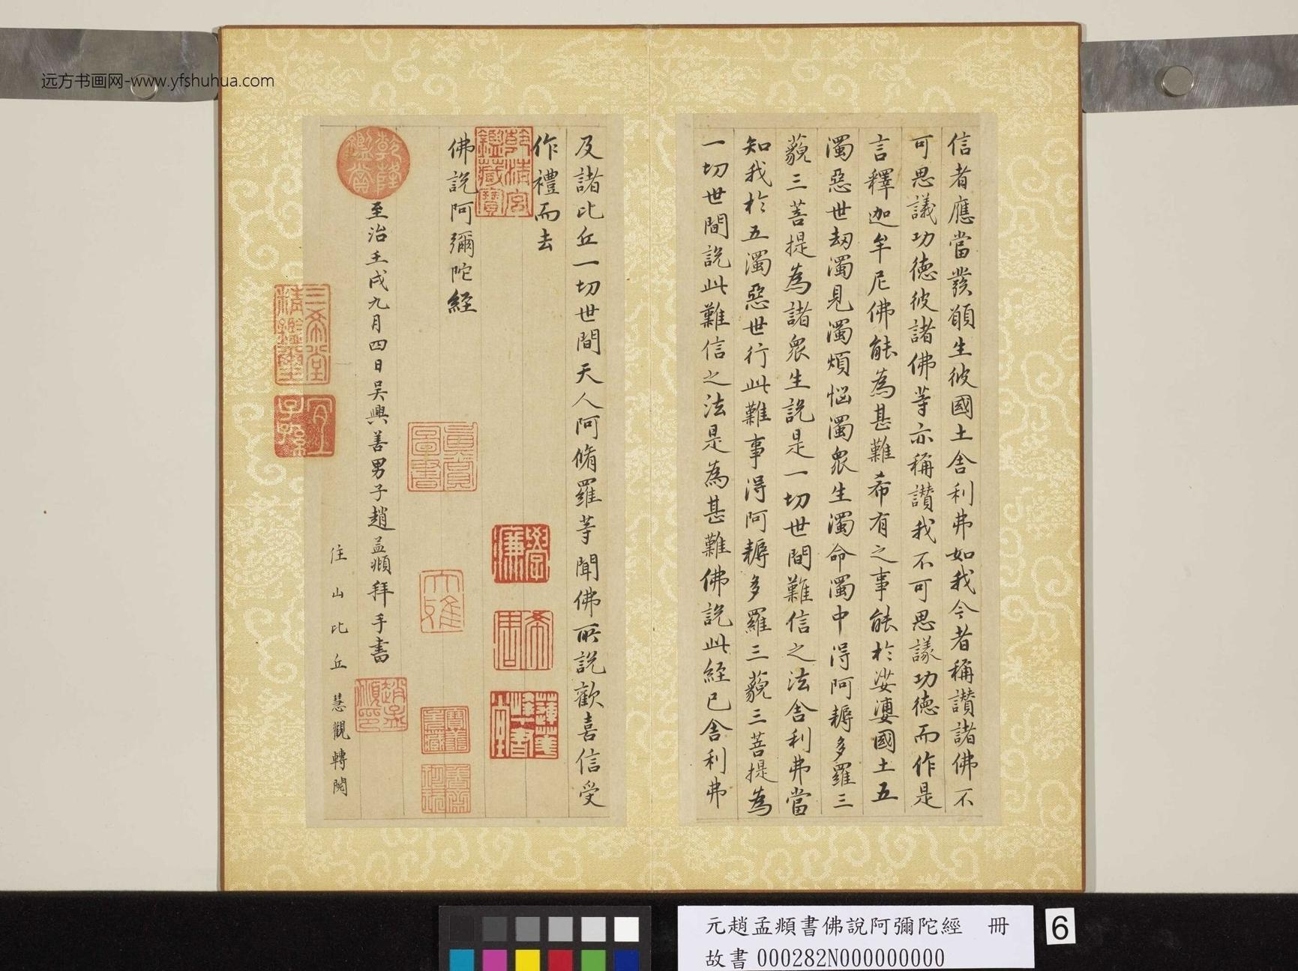 信者應當發願生彼國土舍利弗如我今者稱讚諸佛不
可思議功德彼諸佛等亦稱讚我不可思議功德而作是
言釋迦牟尼佛能為甚難希有之事能於娑婆國土五
濁惡世劫濁見濁煩惱濁眾生濁命濁中得阿耨多羅三
藐三菩提為諸眾生說是一切世間難信之法舍利弗當
知我於五濁惡世行此難事得阿耨多羅三藐三菩提為
一切世間說此難信之法是為甚難佛說此經已舍利弗
及諸比丘一切世間天人阿脩羅等聞佛所說歡喜信受
作禮而去
佛說阿彌陀經
至治壬戌九月四日吳興善男子趙孟頫拜手書
住山比丘慧觀轉閱
乾隆鑑賞
三希堂精鑑璽
宜子孫
远方书画网-www.yfshuhua.com
元趙孟頫書佛說阿彌陀經 冊
故書 000282N000000000
6